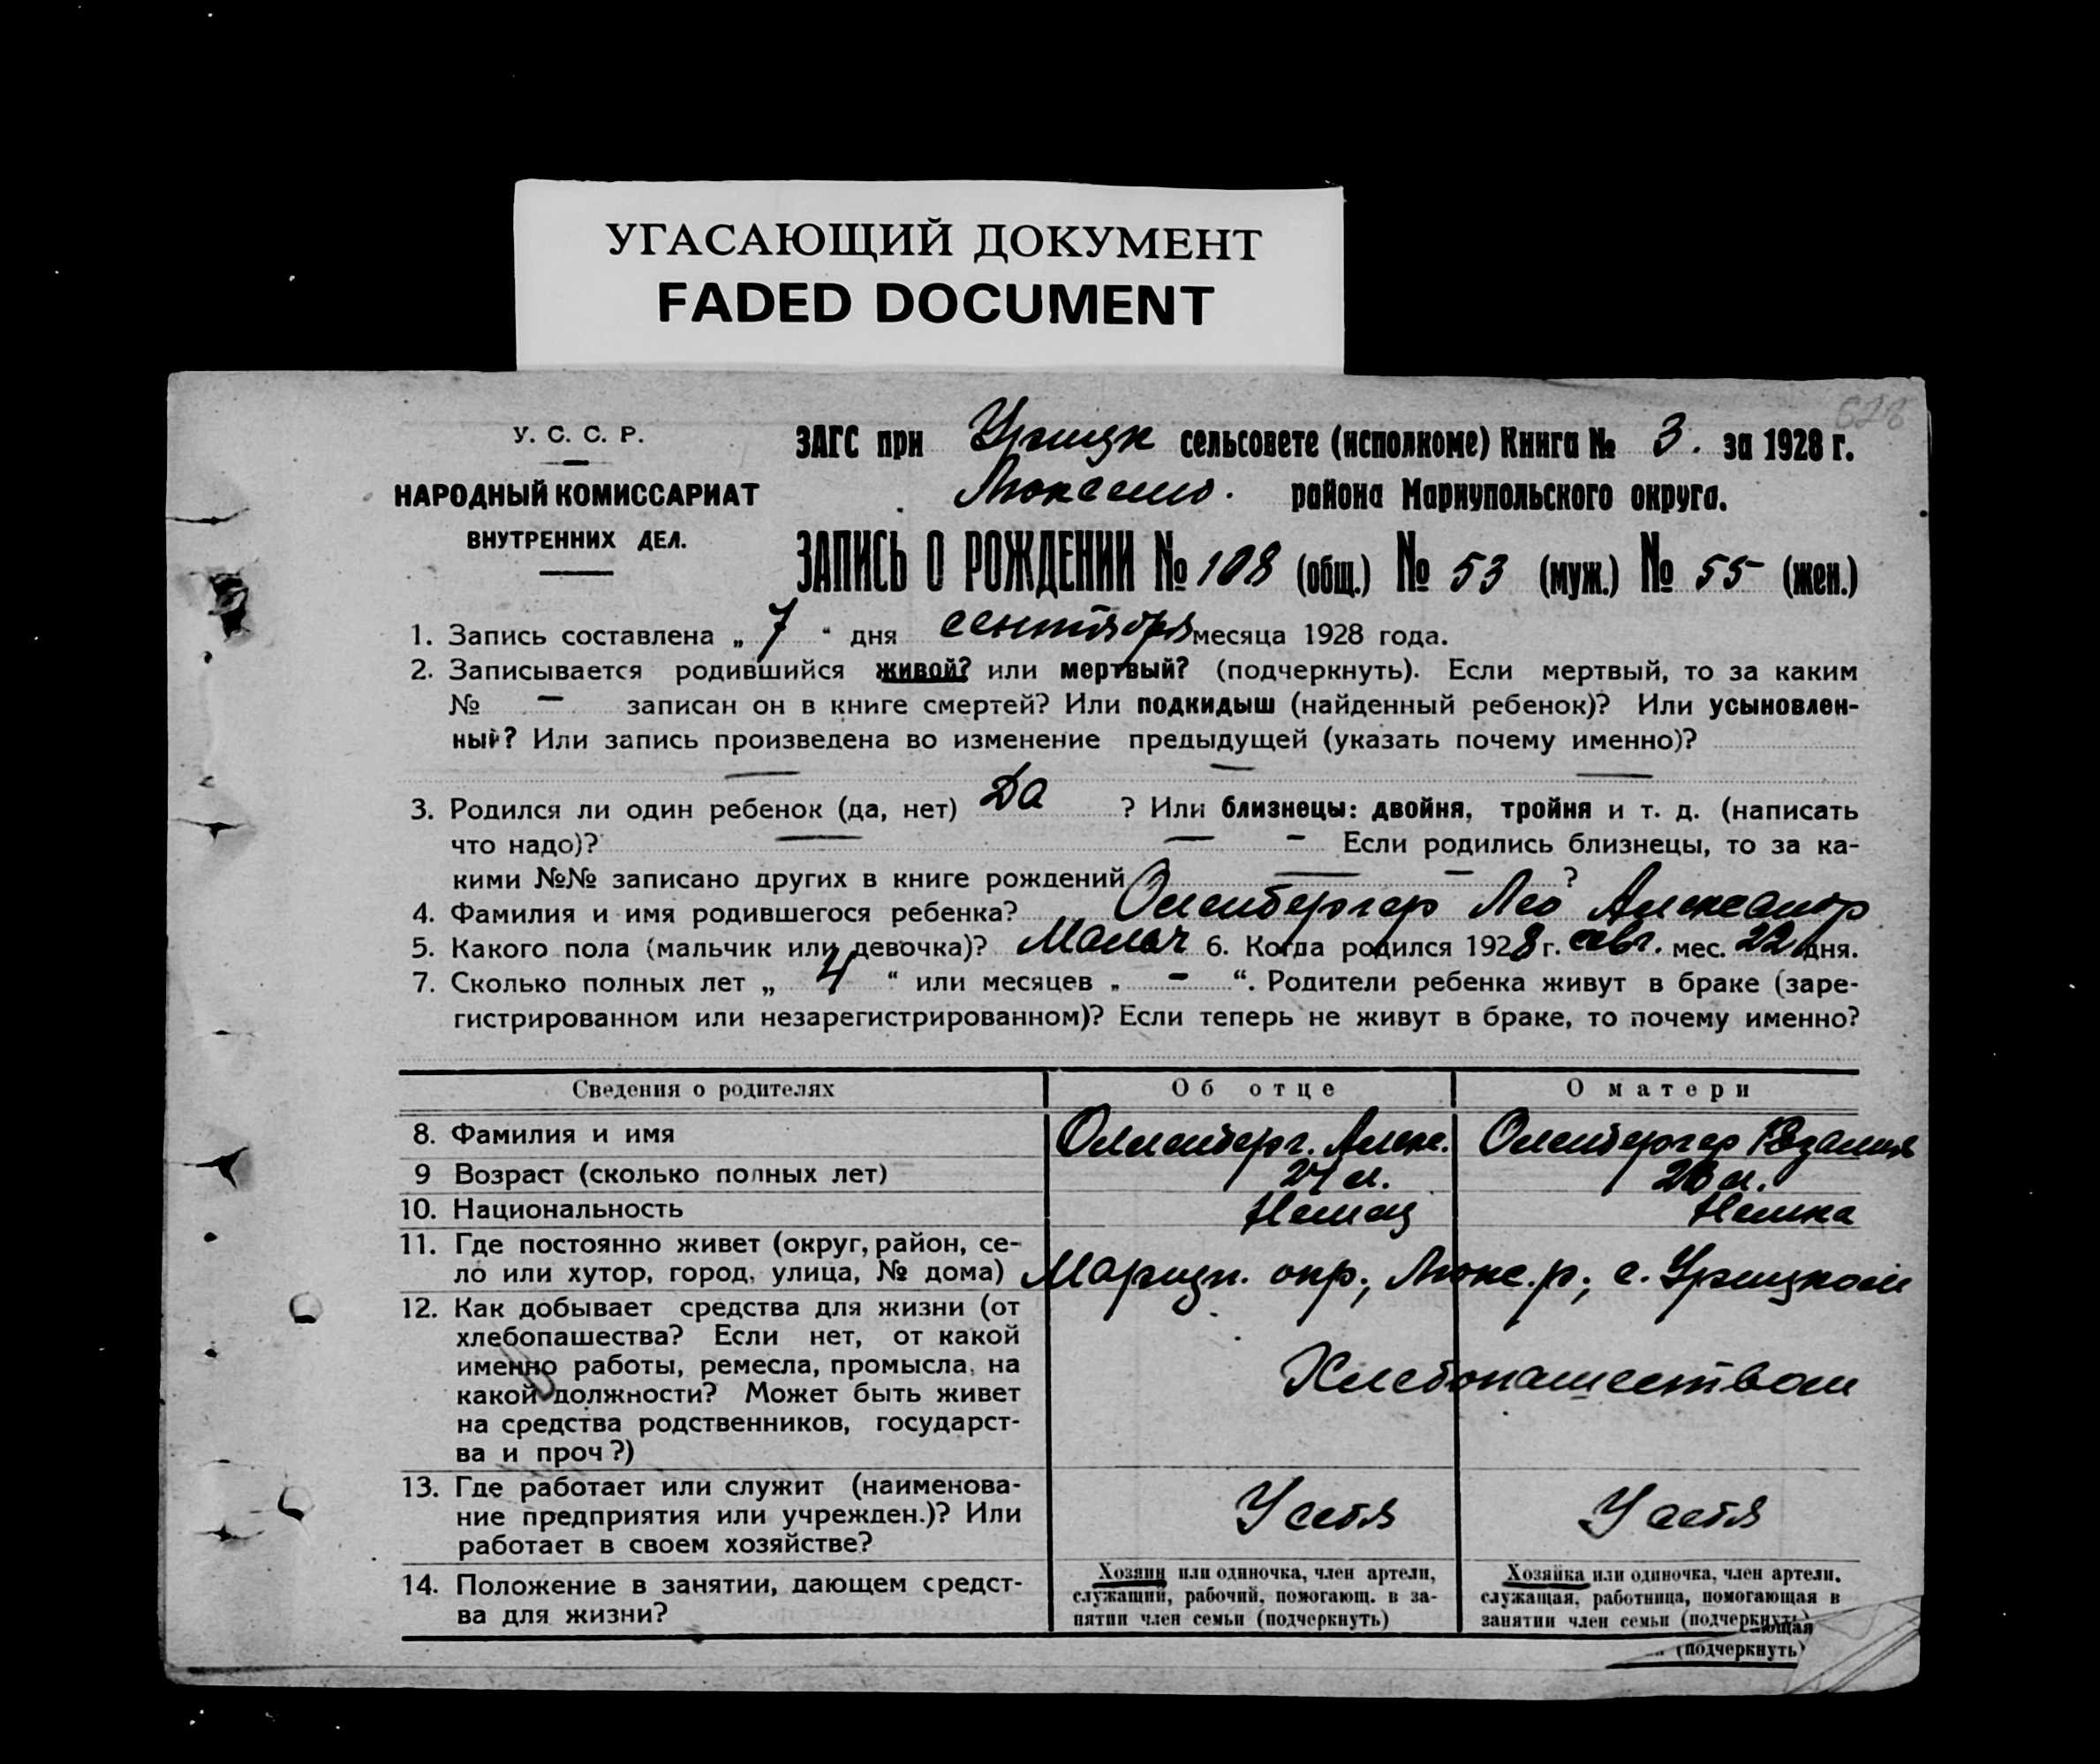 УГАСАЮЩИЙ ДОКУМЕНТ
FADED DOCUMENT
628
У. С. С. Р.
НАРОДНЫЙ КОМИССАРИАТ
ВНУТРЕННИХ ДЕЛ.
ЗАГС при Урицк сельсовете (исполкоме) Книга № 3. за 1928 г.
района Мариупольского округа.
ЗАПИСЬ О РОЖДЕНИИ № 108 (общ.) № 53 (муж.) № 55 (жен.)
1. Запись составлена „ 7 “ дня сентября месяца 1928 года.
2. Записывается родившийся живой? или мертвый? (подчеркнуть). Если мертвый, то за каким
№ — записан он в книге смертей? Или подкидыш (найденный ребенок)? Или усыновлен-
ный? Или запись произведена во изменение предыдущей (указать почему именно)?
— — —
3. Родился ли один ребенок (да, нет) Да ? Или близнецы: двойня, тройня и т. д. (написать
что надо)? — — — Если родились близнецы, то за ка-
кими №№ записано других в книге рождений — — ?
4. Фамилия и имя родившегося ребенка? Оленбергер Лео Александр
5. Какого пола (мальчик или девочка)? Мальч 6. Когда родился 1928 г. авг. мес. 22 дня.
7. Сколько полных лет „ 4 “ или месяцев „ — “. Родители ребенка живут в браке (заре-
гистрированном или незарегистрированном)? Если теперь не живут в браке, то почему именно?
Сведения о родителях Об отце О матери
8. Фамилия и имя Оленберг. Алекс. Оленбергер
9 Возраст (сколько полных лет) 24 л. л.
10. Национальность Немец Немка
11. Где постоянно живет (округ, район, се-
ло или хутор, город, улица, № дома) Мариуп. окр; Люкс. р; с. Урицкой
12. Как добывает средства для жизни (от
хлебопашества? Если нет, от какой
именно работы, ремесла, промысла, на
какой должности? Может быть живет
на средства родственников, государст-
ва и проч?)
Хлебопашеством
13. Где работает или служит (наименова-
ние предприятия или учрежден.)? Или
работает в своем хозяйстве?
У себя У себя
14. Положение в занятии, дающем средст-
ва для жизни?
Хозяин или одиночка, член артели,
служащий, рабочий, помогающ. в за-
нятии член семьи (подчеркнуть)
Хозяйка или одиночка, член артели,
служащая, работница, помогающая в
занятии член семьи (подчеркнуть)
(подчеркнуть)